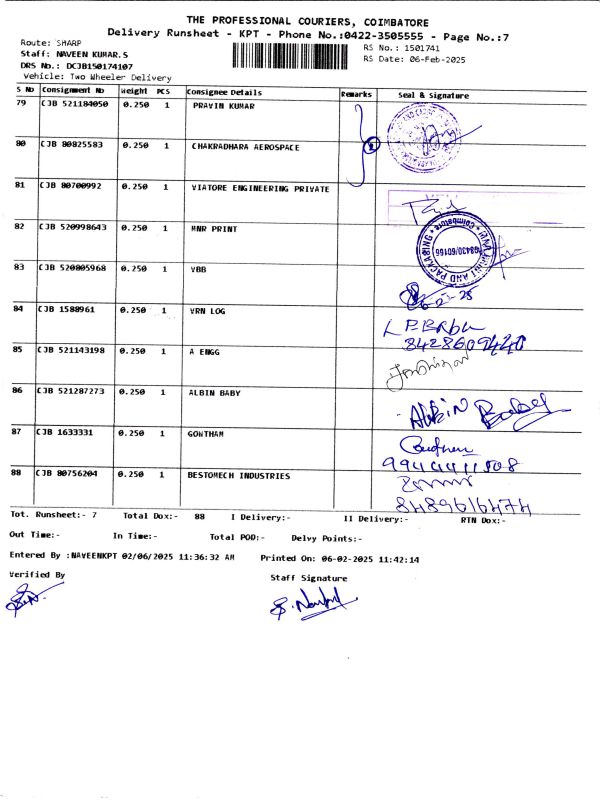 THE PROFESSIONAL COURIERS, COIMBATORE
Delivery Runsheet - KPT - Phone No.:0422-3505555 - Page No.:7
Route: SHARP
RS No.: 1501741
Staff: NAVEEN KUMAR.S
RS Date: 06-Feb-2025
DRS No.: DCJB150174107
Vehicle: Two Wheeler Delivery
S No Consignment No Weight PCS Consignee Details Remarks Seal & Signature
79 CJB 521184050 0.250 1 PRAVIN KUMAR
80 CJB 80825583 0.250 1 CHAKRADHARA AEROSPACE 2
81 CJB 80700992 0.250 1 VIATORE ENGINEERING PRIVATE
82 CJB 520998643 0.250 1 MNR PRINT
83 CJB 520805968 0.250 1 VBB
84 CJB 1588961 0.250 1 VRN LOG L.P.Babu
8428609440
85 CJB 521143198 0.250 1 A ENGG
86 CJB 521287273 0.250 1 ALBIN BABY Albin Baby
87 CJB 1633331 0.250 1 GONTHAM Gouthan
9944411508
88 CJB 80756204 0.250 1 BESTOMECH INDUSTRIES
8489616474
Tot. Runsheet:- 7 Total Dox:- 88 I Delivery:- II Delivery:- RTN Dox:-
Out Time:- In Time:- Total POD:- Delvy Points:-
Entered By :NAVEENKPT 02/06/2025 11:36:32 AM Printed On: 06-02-2025 11:42:14
Verified By
Staff Signature